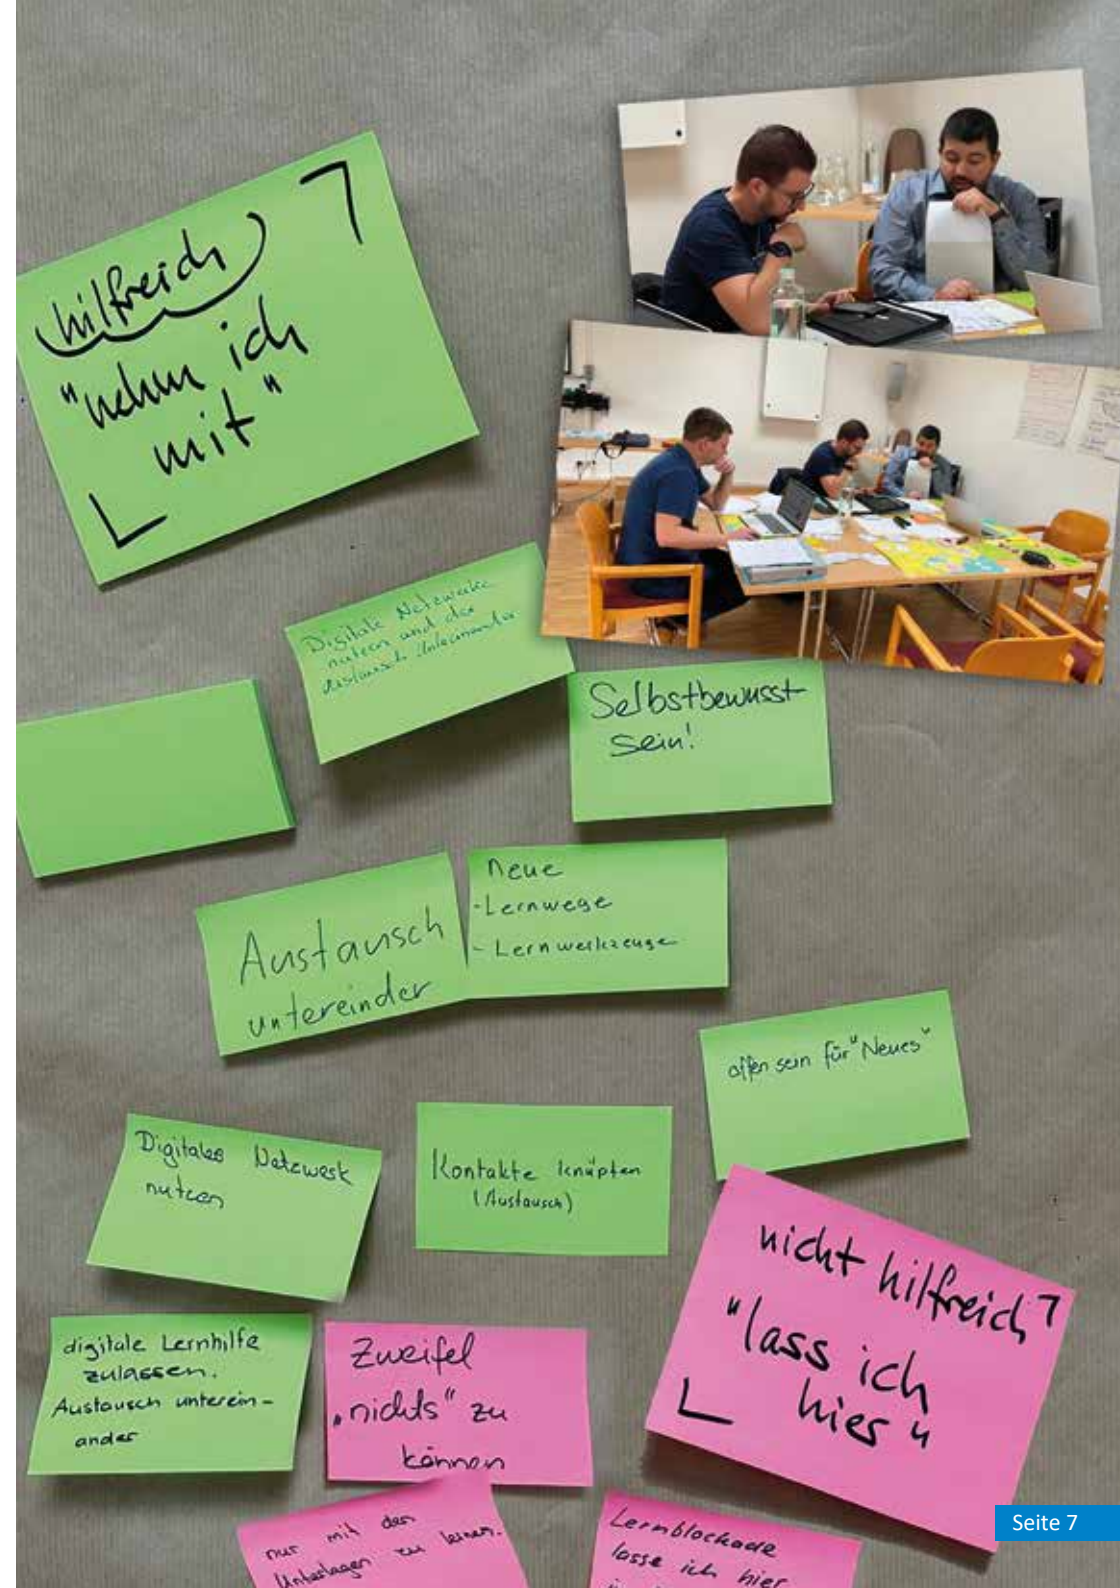 hilfreich
"nehm ich
mit"
Digitale Netzwerke
nutzen und der
Austausch Untereinander
Selbstbewusst
sein!
Austausch
untereinder
neue
-Lernwege
- Lernwerkzeuge
offen sein für "Neues"
Digitales Netzwerk
nutzen
Kontakte knüpfen
(Austausch)
nicht hilfreich
"lass ich
hier"
digitale Lernhilfe
zulassen.
Austausch unterein-
ander
Zweifel
„nichts" zu
können
nur mit den
Unterlagen zu lernen.
Lernblockade
lasse ich hier
Seite 7